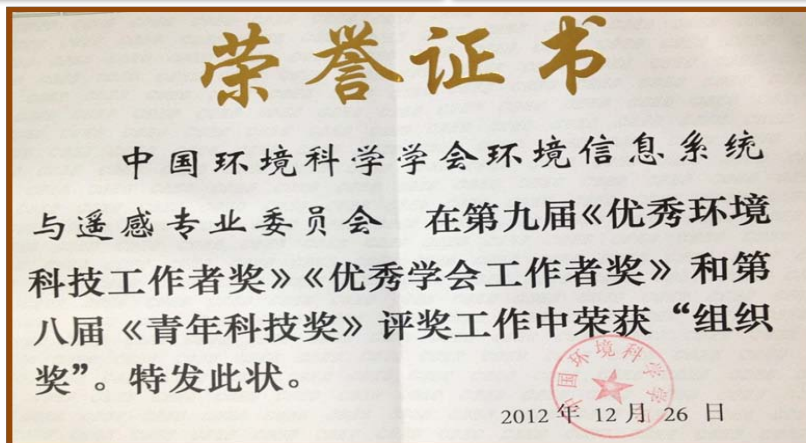 荣誉证书
中国环境科学学会环境信息系统
与遥感专业委员会 在第九届《优秀环境
科技工作者奖》《优秀学会工作者奖》和第
八届《青年科技奖》评奖工作中荣获“组织
奖”。特发此状。
中国环境科学学会
2012年 12月 26日